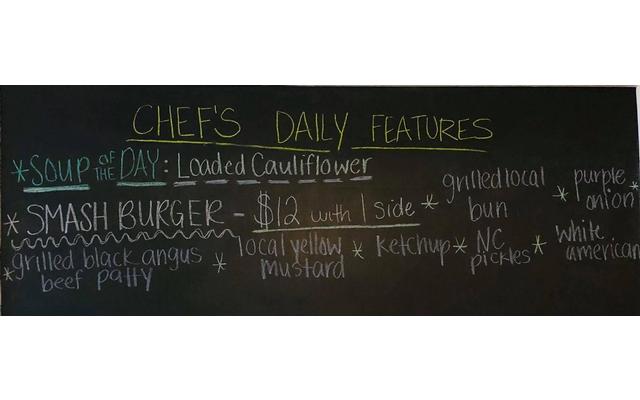 CHEF'S DAILY FEATURES
*SOUP OF THE DAY: Loaded Cauliflower
* SMASH BURGER - $12 with 1 side * grilled local bun * purple onion *
* grilled black angus beef patty * local yellow mustard * ketchup * NC pickles * white american